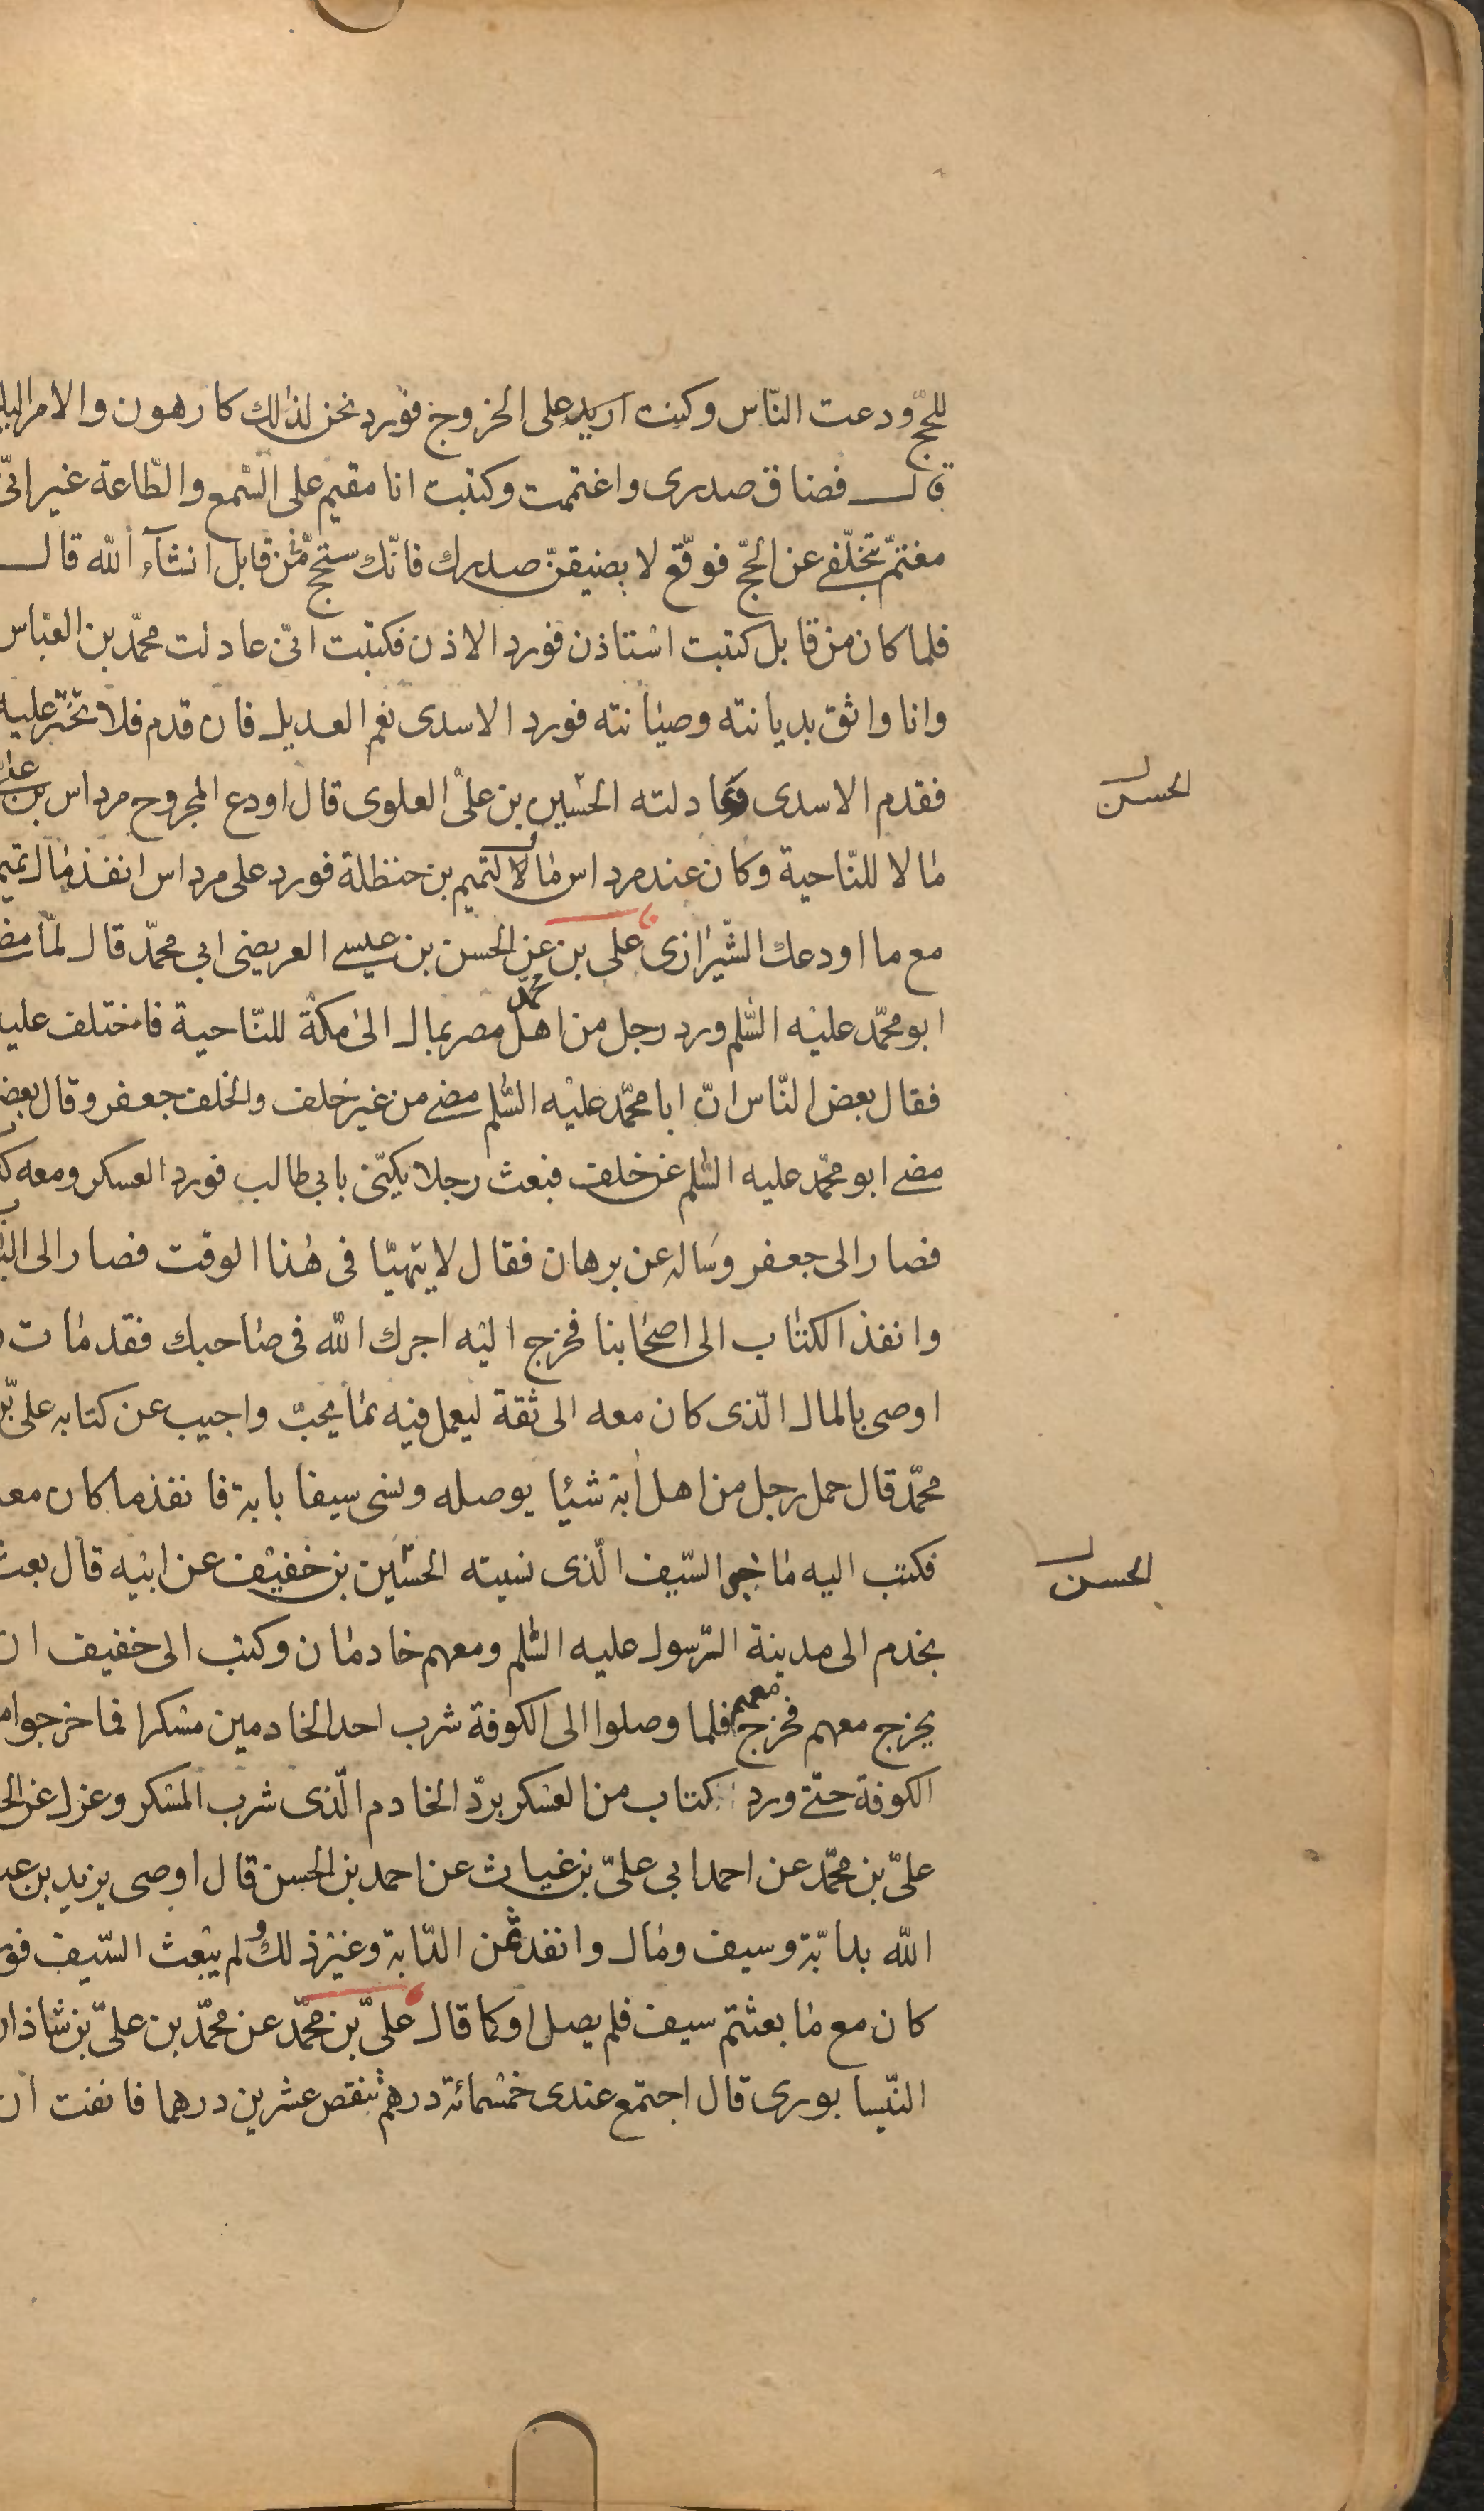 للحجّ ودعت النّاس وكنت اريد على الخروج فورد نحن لذلك كارهون والامر اليك
قال فضاق صدرى واغتممت وكتبت انا مقيم على السّمع والطّاعة غير انّى
مغتمّ بتخلّفى عن الحجّ فوقّع لا يضيقنّ صدرك فانّك ستحجّ من قابل انشآء الله قال
فلما كان من قابل كتبت استاذن فورد الاذن فكتبت انّى عادلت محمّد بن العبّاس
وانا واثق بديانته وصيانته فورد الاسدى نعم العديل فان قدم فلا تختر عليه
فقدم الاسدى وعادلته الحسين بن علىّ العلوى قال اودع المجروح مرداس بن على
الحسن
مالا للنّاحية وكان عند مرداس مالا لتميم بن حنظلة فورد على مرداس انفذ مال تميم
مع ما اودعك الشّيرازى على بن عن الحسن بن عيسى العريضى ابى محمّد قال لمّا مضى
محمّد
ابو محمّد عليه السّلم ورد رجل من اهل مصر بمال الى مكّة للنّاحية فاختلف عليه
فقال بعض النّاس انّ ابا محمّد عليه السّلم مضى من غير خلف والخلف جعفر وقال بعض
مضى ابو محمّد عليه السّلم عن خلف فبعث رجلا يكنّى بابى طالب فورد العسكر ومعه
فصار الى جعفر وساله عن برهان فقال لا يتهيّا فى هذا الوقت فصار الى
وانفذ الكتاب الى اصحابنا فخرج اليه اجرك الله فى صاحبك فقد مات
اوصى بالمال الّذى كان معه الى ثقة ليعمل فيه بما يحبّ واجيب عن كتابه علىّ بن
محمّد قال حمل رجل من اهل ابة شيئا يوصله ونسى سيفا بابة فانفذ ما كان معه
فكتب اليه ما خبر السّيف الّذى نسيته الحسين بن خفيف عن ابيه قال بعث
الحسن
بخدم الى مدينة الرّسول عليه السّلم ومعهم خادمان وكتب الى خفيف ان
يخرج معهم فخرج معهم فلما وصلوا الى الكوفة شرب احد الخادمين مسكرا فما خرجوا من
الكوفة حتّى ورد كتاب من العسكر بردّ الخادم الّذى شرب المسكر وعزل عن
علىّ بن محمّد عن احمد ابى علىّ بن غياث عن احمد بن الحسن قال اوصى يزيد بن عبد
الله بدابّة وسيف ومال وانفذ ثمن الدّابة وغير ذلك ولم يبعث السّيف فورد
كان مع ما بعثتم سيف فلم يصل او كما قال علىّ بن محمّد عن محمّد بن علىّ بن شاذان
النّيسابورى قال اجتمع عندى خمسمائة درهم تنقص عشرين درهما فانفت ان